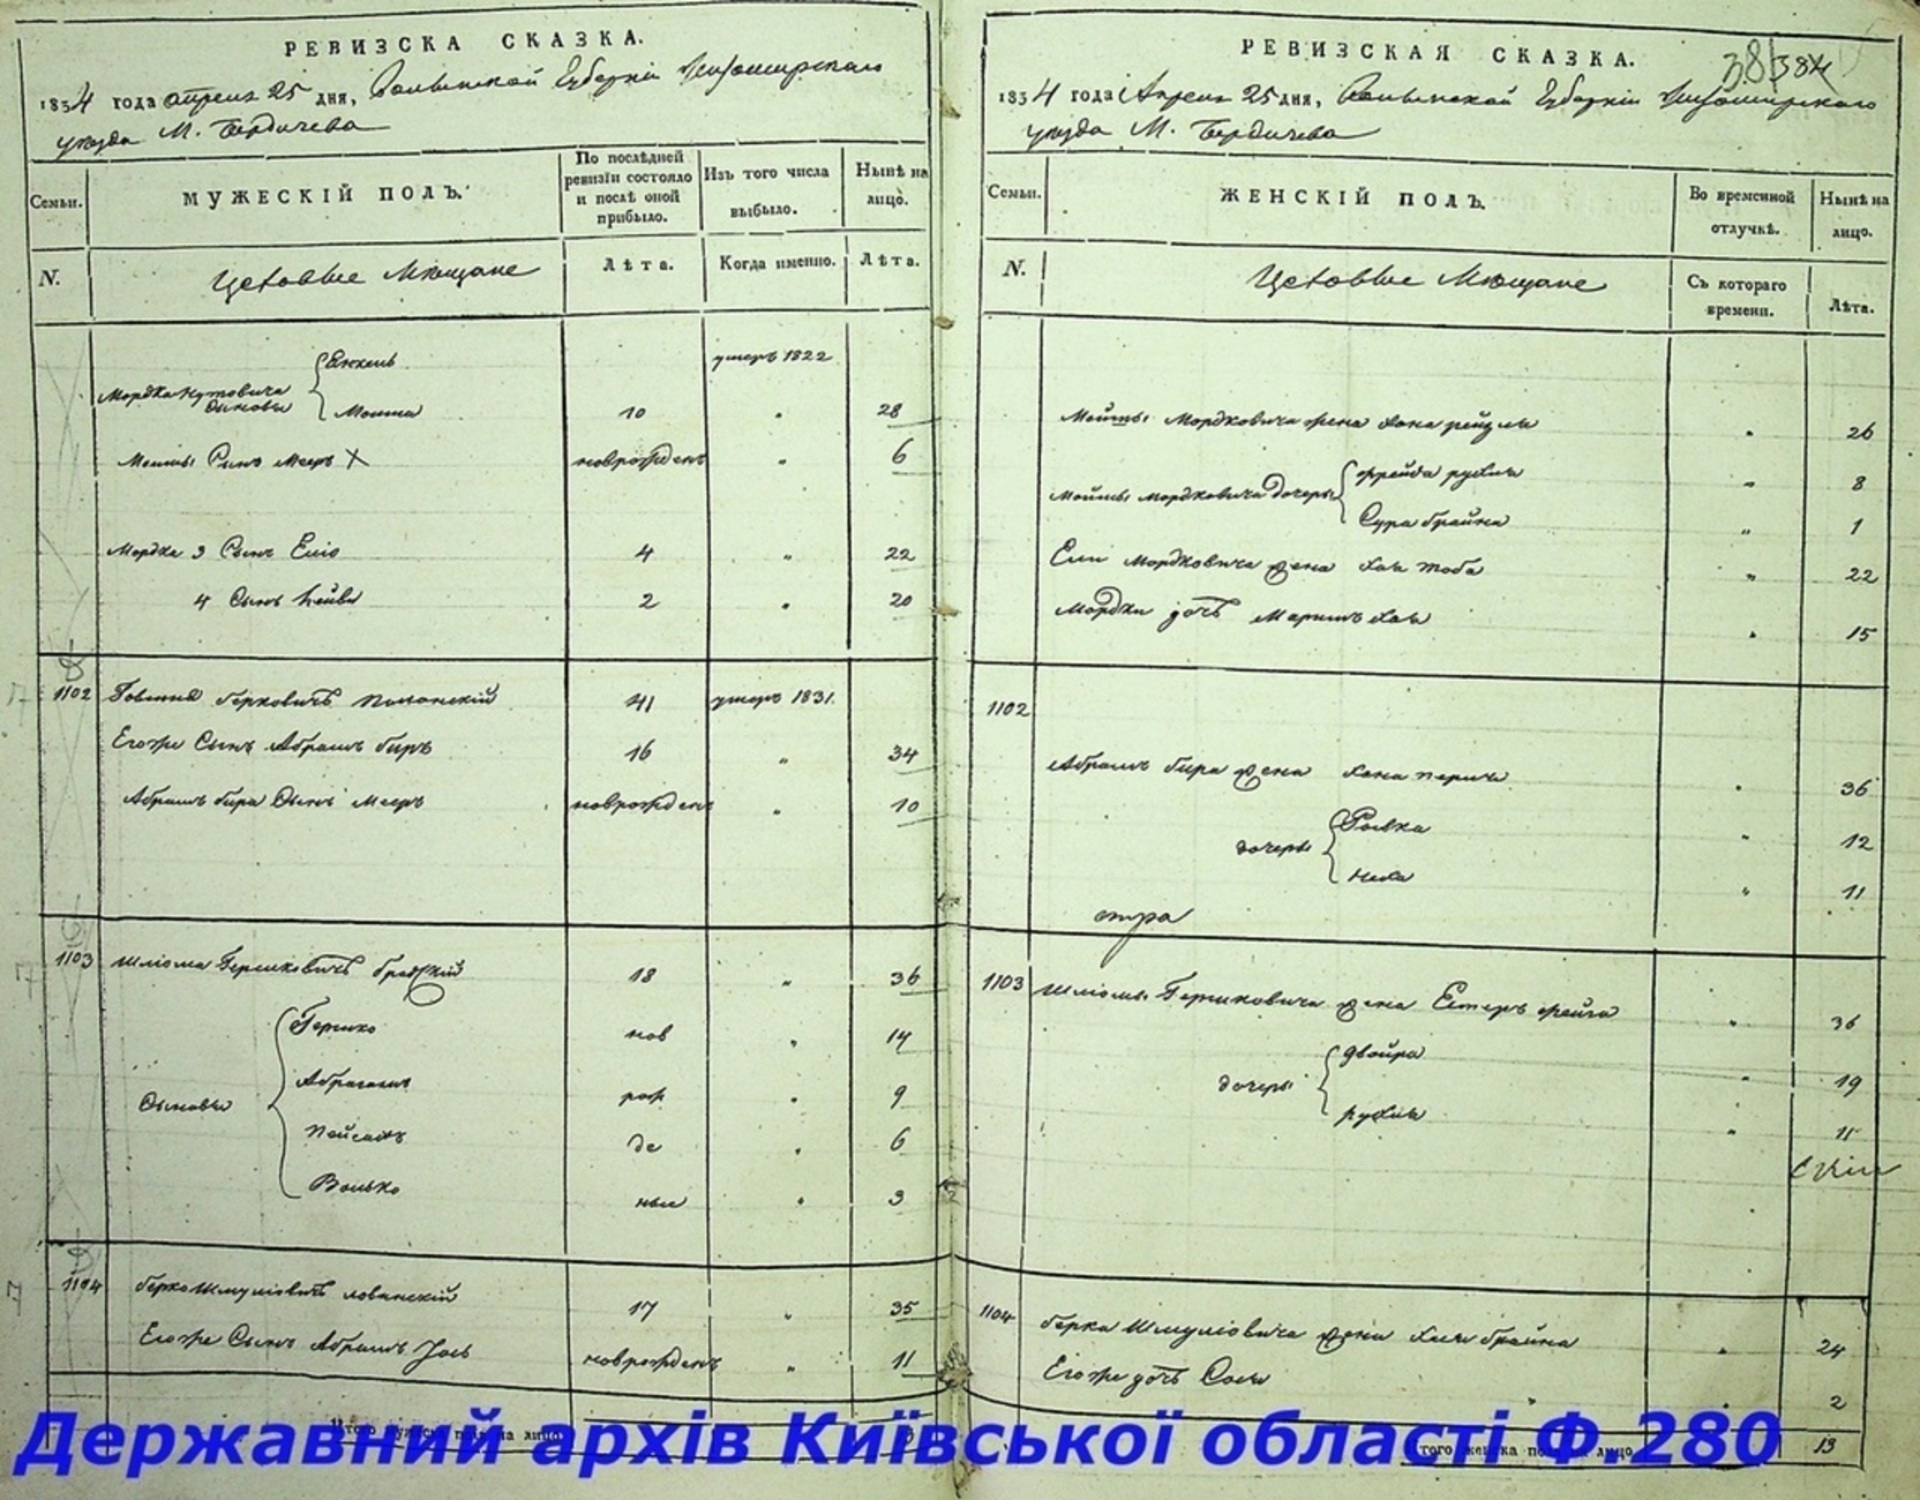 РЕВИЗСКА СКАЗКА.
1834 года апреля 25 дня, Волынской Губернїи Житомирскаго
уезда М. Бердичева
Семьи.
МУЖЕСКІЙ ПОЛЪ.
По послѣдней ревизїи состояло и послѣ оной прибыло.
Изъ того числа выбыло.
Нынѣ на лицо.
N.
Цеховые Мѣщане
Лѣта.
Когда именно.
Лѣта.
умеръ 1822
Мордка
сыновья
10 28
Сынъ Мееръ X новорожденъ 6
Мордка 3 Сынъ Еліо 4 22
4 Сынъ Лейви 2 20
1102 Берковичъ 41 умеръ 1831.
Егоже Сынъ Абрамъ Беръ 16 34
Абрамъ Бера Сынъ Мееръ новорожденъ 10
1103 Шліома Гершковичъ Бродскій 18 36
Сыновья
Гершко нов 14
Абрагамъ рож 9
Пейсахъ де 6
Волько ные 3
1104 Берко Шмуліовичъ 17 35
Егоже Сынъ Абрамъ Іось новорожденъ 11
Итого мужеска пола на лицо
РЕВИЗСКАЯ СКАЗКА.
384
1834 года Апреля 25 дня, Волынской Губернїи Житомирскаго
уезда М. Бердичева
Семьи.
ЖЕНСКІЙ ПОЛЪ.
Во временной отлучкѣ.
Нынѣ на лицо.
N.
Цеховые Мѣщане
Съ котораго времени.
Лѣта.
Мордковича жена Хана Рейзля 26
Мордковича дочеры
Фрейда Рухля 8
Сура Брайна 1
Ели Мордковича жена Хая Тоба 22
Мордки дочь Маріимъ Хая 15
1102
Абрамъ Бера жена Хана Перля 36
дочеры
Ривка 12
Неха 11
1103 Шліомы Гершковича жена Естеръ Фейга 36
дочеры
Двойра 19
Рухля 11
1104 Берка Шмуліовича жена Брайна 24
Егоже дочь Сося 2
того женска пола на лицо 13
Державний архів Київської області Ф.280